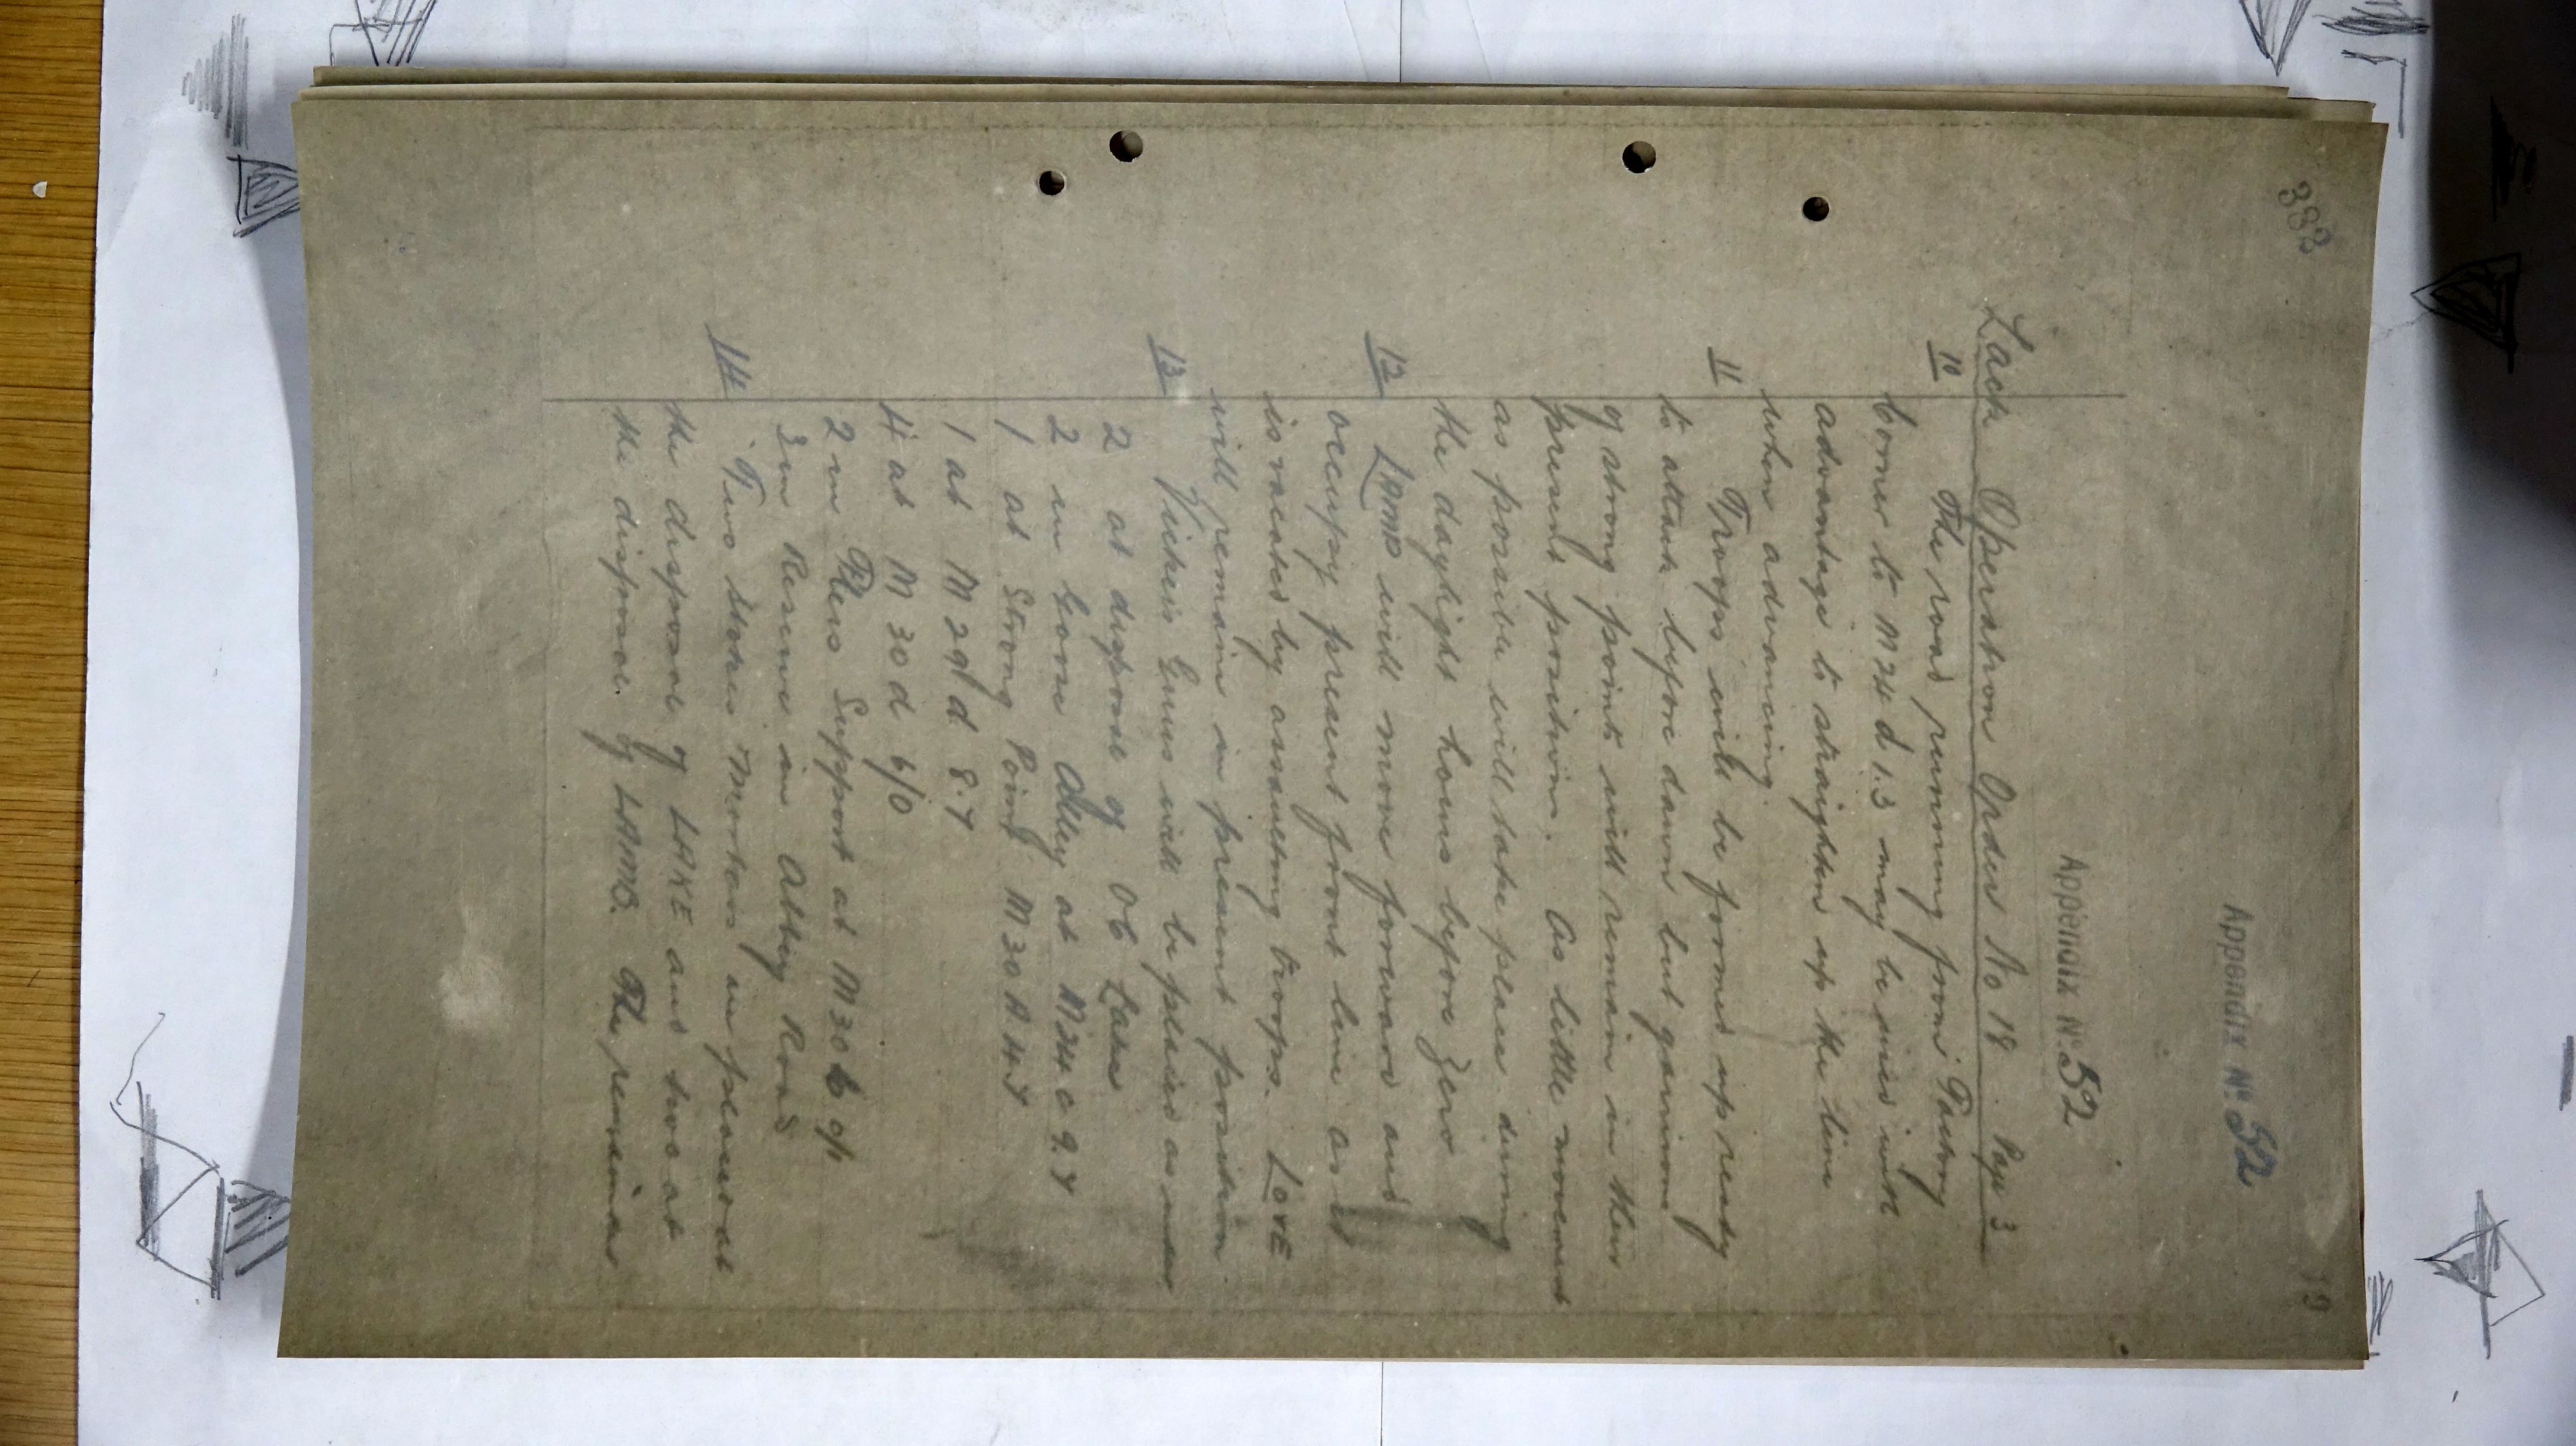 383
19
Appendix No. 52
Appendix No. 52
Lack Operation Order No 18. Page 3
10 The road running from Factory
Corner to M 24 d 1.3 may be used with
advantage to straighten up the line
when advancing.
11 Troops will be formed up ready
to attack before dawn but garrisons
of strong points will remain in their
present position. As little movement
as possible will take place during
the daylight hours before Zero
12 LAMP will move forward and
occupy present front line as it
is vacated by assaulting troops. LOVE
will remain in present position.
13 Vickers Guns will be placed as under
2 at disposal of OC Lake
2 in Goose Alley at M24 c 9.7
1 at Strong Point M 30 A 4.7
1 at M 29 d 8.7
4 at M 30 d 6/0
2 in Flers Support at M 30 b 0/1
3 in Reserve in Abbey Road
14 Two Stokes Mortars are placed at
the disposal of LAKE and two at
the disposal of LAMB. The remainder